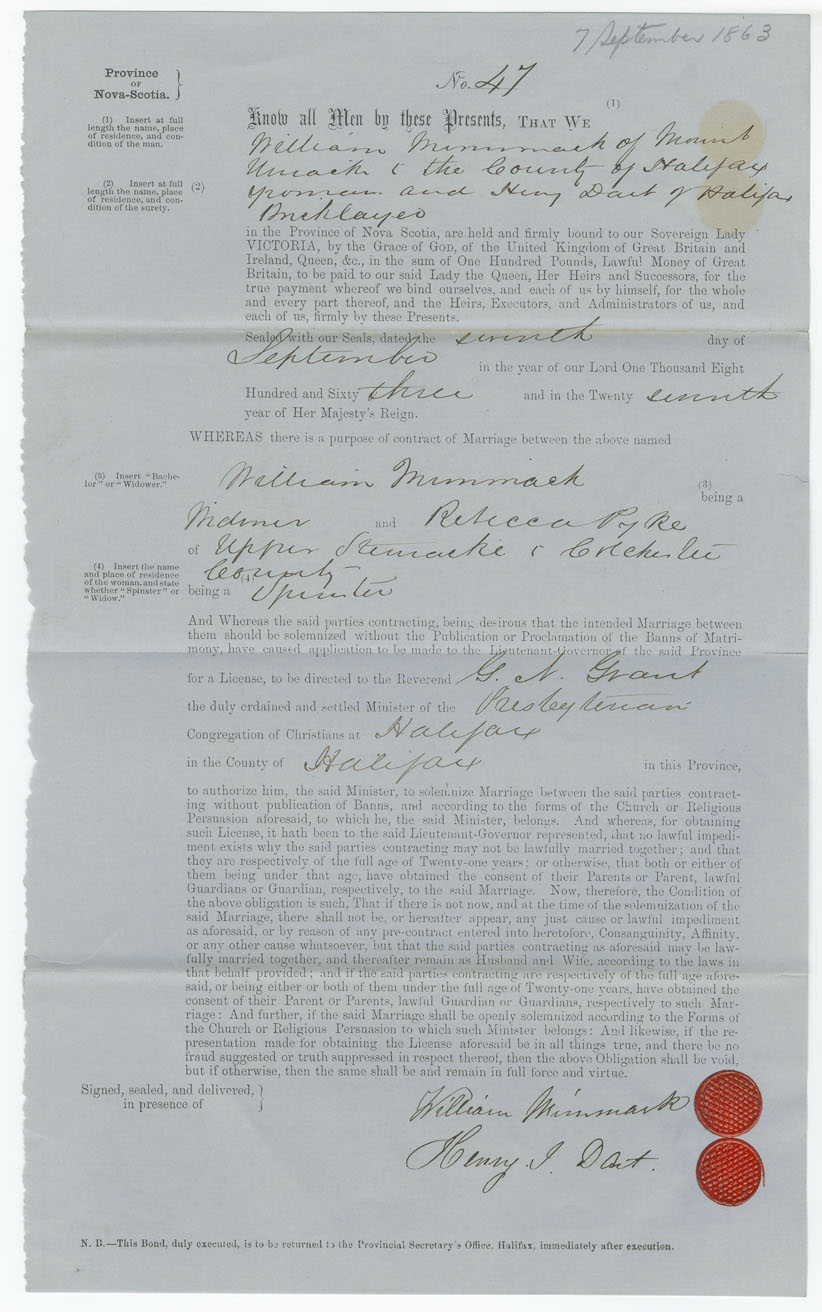 7 September 1863
Province
OF
Nova-Scotia.
No. 47
(1) Insert at full
length the name, place
of residence, and con-
dition of the man.
(1)
Know all Men by these Presents, THAT WE
William Mimmack of Mount
Uniacke & the County of Halifax
(2) Insert at full
length the name, place
of residence, and con-
dition of the surety.
(2)
yeoman and Henry Dart of Halifax
Bricklayer
in the Province of Nova Scotia, are held and firmly bound to our Sovereign Lady
VICTORIA, by the Grace of GOD, of the United Kingdom of Great Britain and
Ireland, Queen, &c., in the sum of One Hundred Pounds, Lawful Money of Great
Britain, to be paid to our said Lady the Queen, Her Heirs and Successors, for the
true payment whereof we bind ourselves, and each of us by himself, for the whole
and every part thereof, and the Heirs, Executors, and Administrators of us, and
each of us, firmly by these Presents.
Sealed with our Seals, dated the seventh day of
September in the year of our Lord One Thousand Eight
Hundred and Sixty three and in the Twenty seventh
year of Her Majesty's Reign.
WHEREAS there is a purpose of contract of Marriage between the above named
(3) Insert "Bache-
lor" or "Widower."
William Mimmack (3)
being a
Widower and Rebecca Pyke
of Upper Stewiacke & Colchester
County
(4) Insert the name
and place of residence
of the woman, and state
whether "Spinster" or
"Widow."
being a (4) Spinster
And Whereas the said parties contracting, being desirous that the intended Marriage between
them should be solemnized without the Publication or Proclamation of the Banns of Matri-
mony, have caused application to be made to the Lieutenant-Governor of the said Province
for a License, to be directed to the Reverend G. N. Grant
the duly ordained and settled Minister of the Presbyterian
Congregation of Christians at Halifax
in the County of Halifax in this Province,
to authorize him, the said Minister, to solemnize Marriage between the said parties contract-
ing without publication of Banns, and according to the forms of the Church or Religious
Persuasion aforesaid, to which he, the said Minister, belongs. And whereas, for obtaining
such License, it hath been to the said Lieutenant-Governor represented, that no lawful impedi-
ment exists why the said parties contracting may not be lawfully married together; and that
they are respectively of the full age of Twenty-one years; or otherwise, that both or either of
them being under that age, have obtained the consent of their Parents or Parent, lawful
Guardians or Guardian, respectively, to the said Marriage. Now, therefore, the Condition of
the above obligation is such, That if there is not now, and at the time of the solemnization of the
said Marriage, there shall not be, or hereafter appear, any just cause or lawful impediment
as aforesaid, or by reason of any pre-contract entered into heretofore, Consanguinity, Affinity,
or any other cause whatsoever, but that the said parties contracting as aforesaid may be law-
fully married together, and thereafter remain as Husband and Wife, according to the laws in
that behalf provided; and if the said parties contracting are respectively of the full age afore-
said, or being either or both of them under the full age of Twenty-one years, have obtained the
consent of their Parent or Parents, lawful Guardian or Guardians, respectively to such Mar-
riage: And further, if the said Marriage shall be openly solemnized according to the Forms of
the Church or Religious Persuasion to which such Minister belongs: And likewise, if the re-
presentation made for obtaining the License aforesaid be in all things true, and there be no
fraud suggested or truth suppressed in respect thereof, then the above Obligation shall be void,
but if otherwise, then the same shall be and remain in full force and virtue.
Signed, sealed, and delivered,
in presence of
William Mimmack
Henry J. Dart.
N. B.—This Bond, duly executed, is to be returned to the Provincial Secretary's Office, Halifax, immediately after execution.